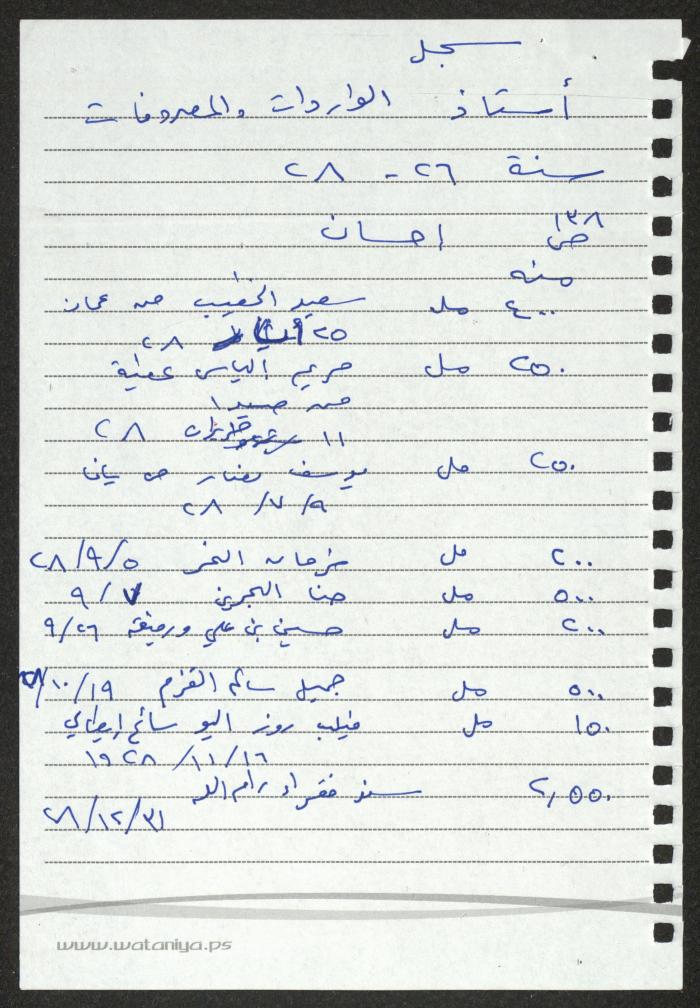 سجل
أستاذ الواردات والمصروفات
سنة ٢٦ - ٢٨
ص ١٣٨ إحسان
منه
٤٠٠ مل سعيد الخطيب من عمان
٢٥ أيار ٢٨
٢٥٠ مل مريم الياس عطية
من صيدا
١١ حزيران ٢٨
٢٥٠ مل يوسف نصار من يافا
٩/ ٧/ ٢٨
٢٠٠ مل الخر ٥/٩/٢٨
٥٠٠ مل حنا البحرين ٧/٩
٢٠٠ مل حسين بن علي ورفيقه ٢٦/٩
٥٠٠ مل جميل سالم القزم ١٩/١٠/٢٨
١٥٠ مل فيليب روز اليو سائح ايطالي
١٦/١١/ ١٩٢٨
٢,٥٥٠ سند فقراء رام الله
٣١/١٢/٢٨
www.wataniya.ps